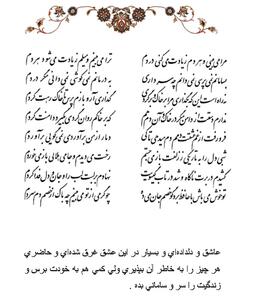 مرا می‌بینی و هر دم زیادت می‌کنی دردم ترا می‌بینم و میلم زیادت می‌شود هر دم
بسامانم نمی‌پرسی نمی‌دانم چه سر داری به درمانم نمی‌کوشی نمی‌دانی مگر دردم
نه راه است این که بگذاری مرا بر خاک و بگریزی گذاری آر و بازم پرس تا خاک رهت گردم
ندارم دستت از دامن مگر در خاک و آن دم هم که بر خاکم روان گردی بگیرد دامنت گردم
فرو رفت از غم عشقت دمم دم می‌دهی تا کی دمار از من برآوردی نمی‌گویی برآوردم
شبی دل را به تاریکی ز زلفت باز می‌جستم رخت می‌دیدم و جامی هلالی باز می‌خوردم
کشیدم در برت ناگاه و شد در تاب گیسویت نهادم بر لبت لب را و جان و دل فدا کردم
تو خوش می‌باش با حافظ برو گو خصم جان می‌ده چو گرمی از تو می‌بینم چه باک از خصم دم سردم
عاشق و دلداده‌اي و بسيار در اين عشق غرق شده‌اي و حاضري
هر چيز را به خاطر آن بپذيري ولي كمي هم به خودت برس و
زندگيت را سر و ساماني بده .